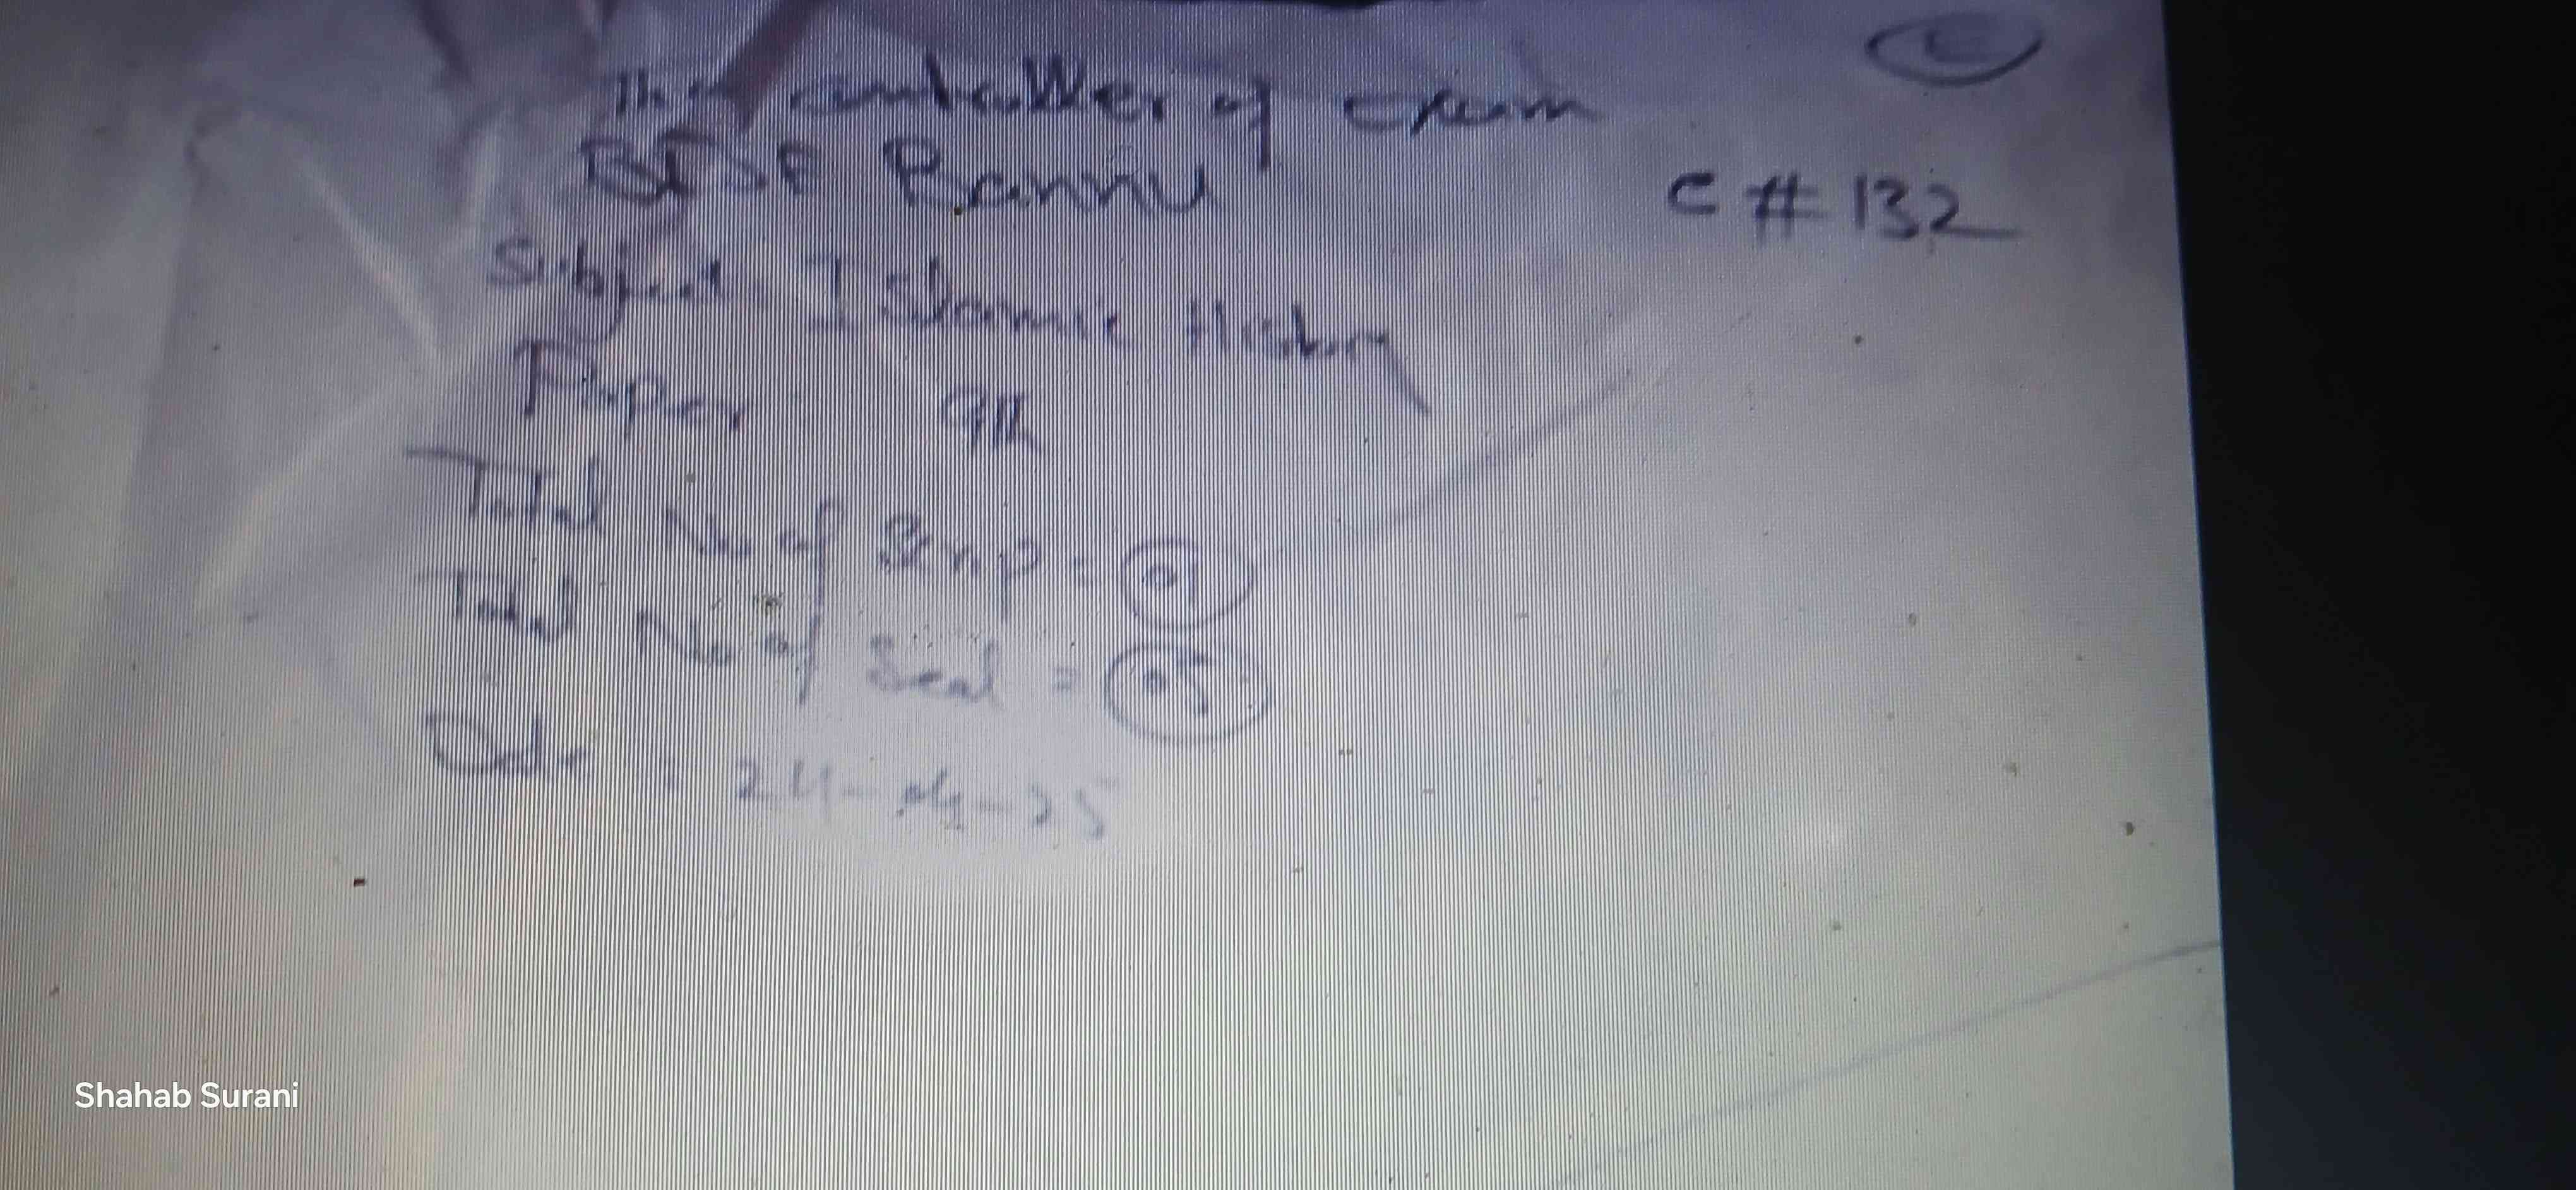 E
The controller of Exam
BISE Bannu
C # 132
Subject Islamic History
Paper 9th
Total No of Scrip = 01
Total No of Seal = 05
Date = 24-04-25
Shahab Surani